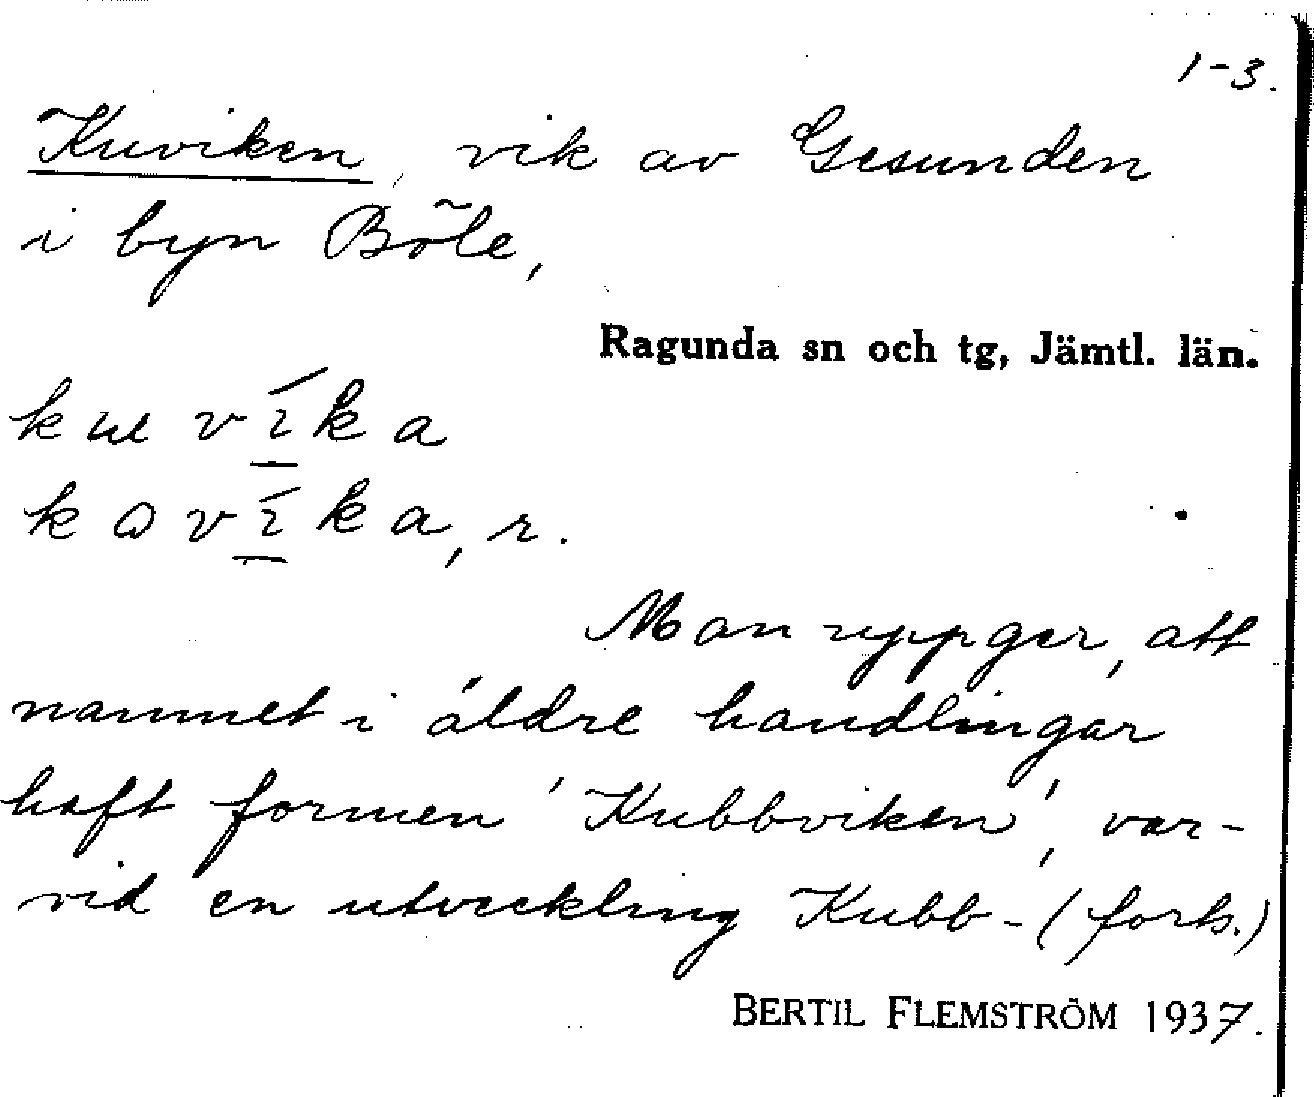 1-3.
Kuviken, vik av Gesunden
i byn Böle,
Ragunda sn och tg, Jämtl. län.
ku víka
kωvíka, r.
Man uppger, att
namnet i äldre handlingar
haft formen 'Kubbviken', var-
vid en utveckling Kubb- (forts.)
BERTIL FLEMSTRÖM 1937.